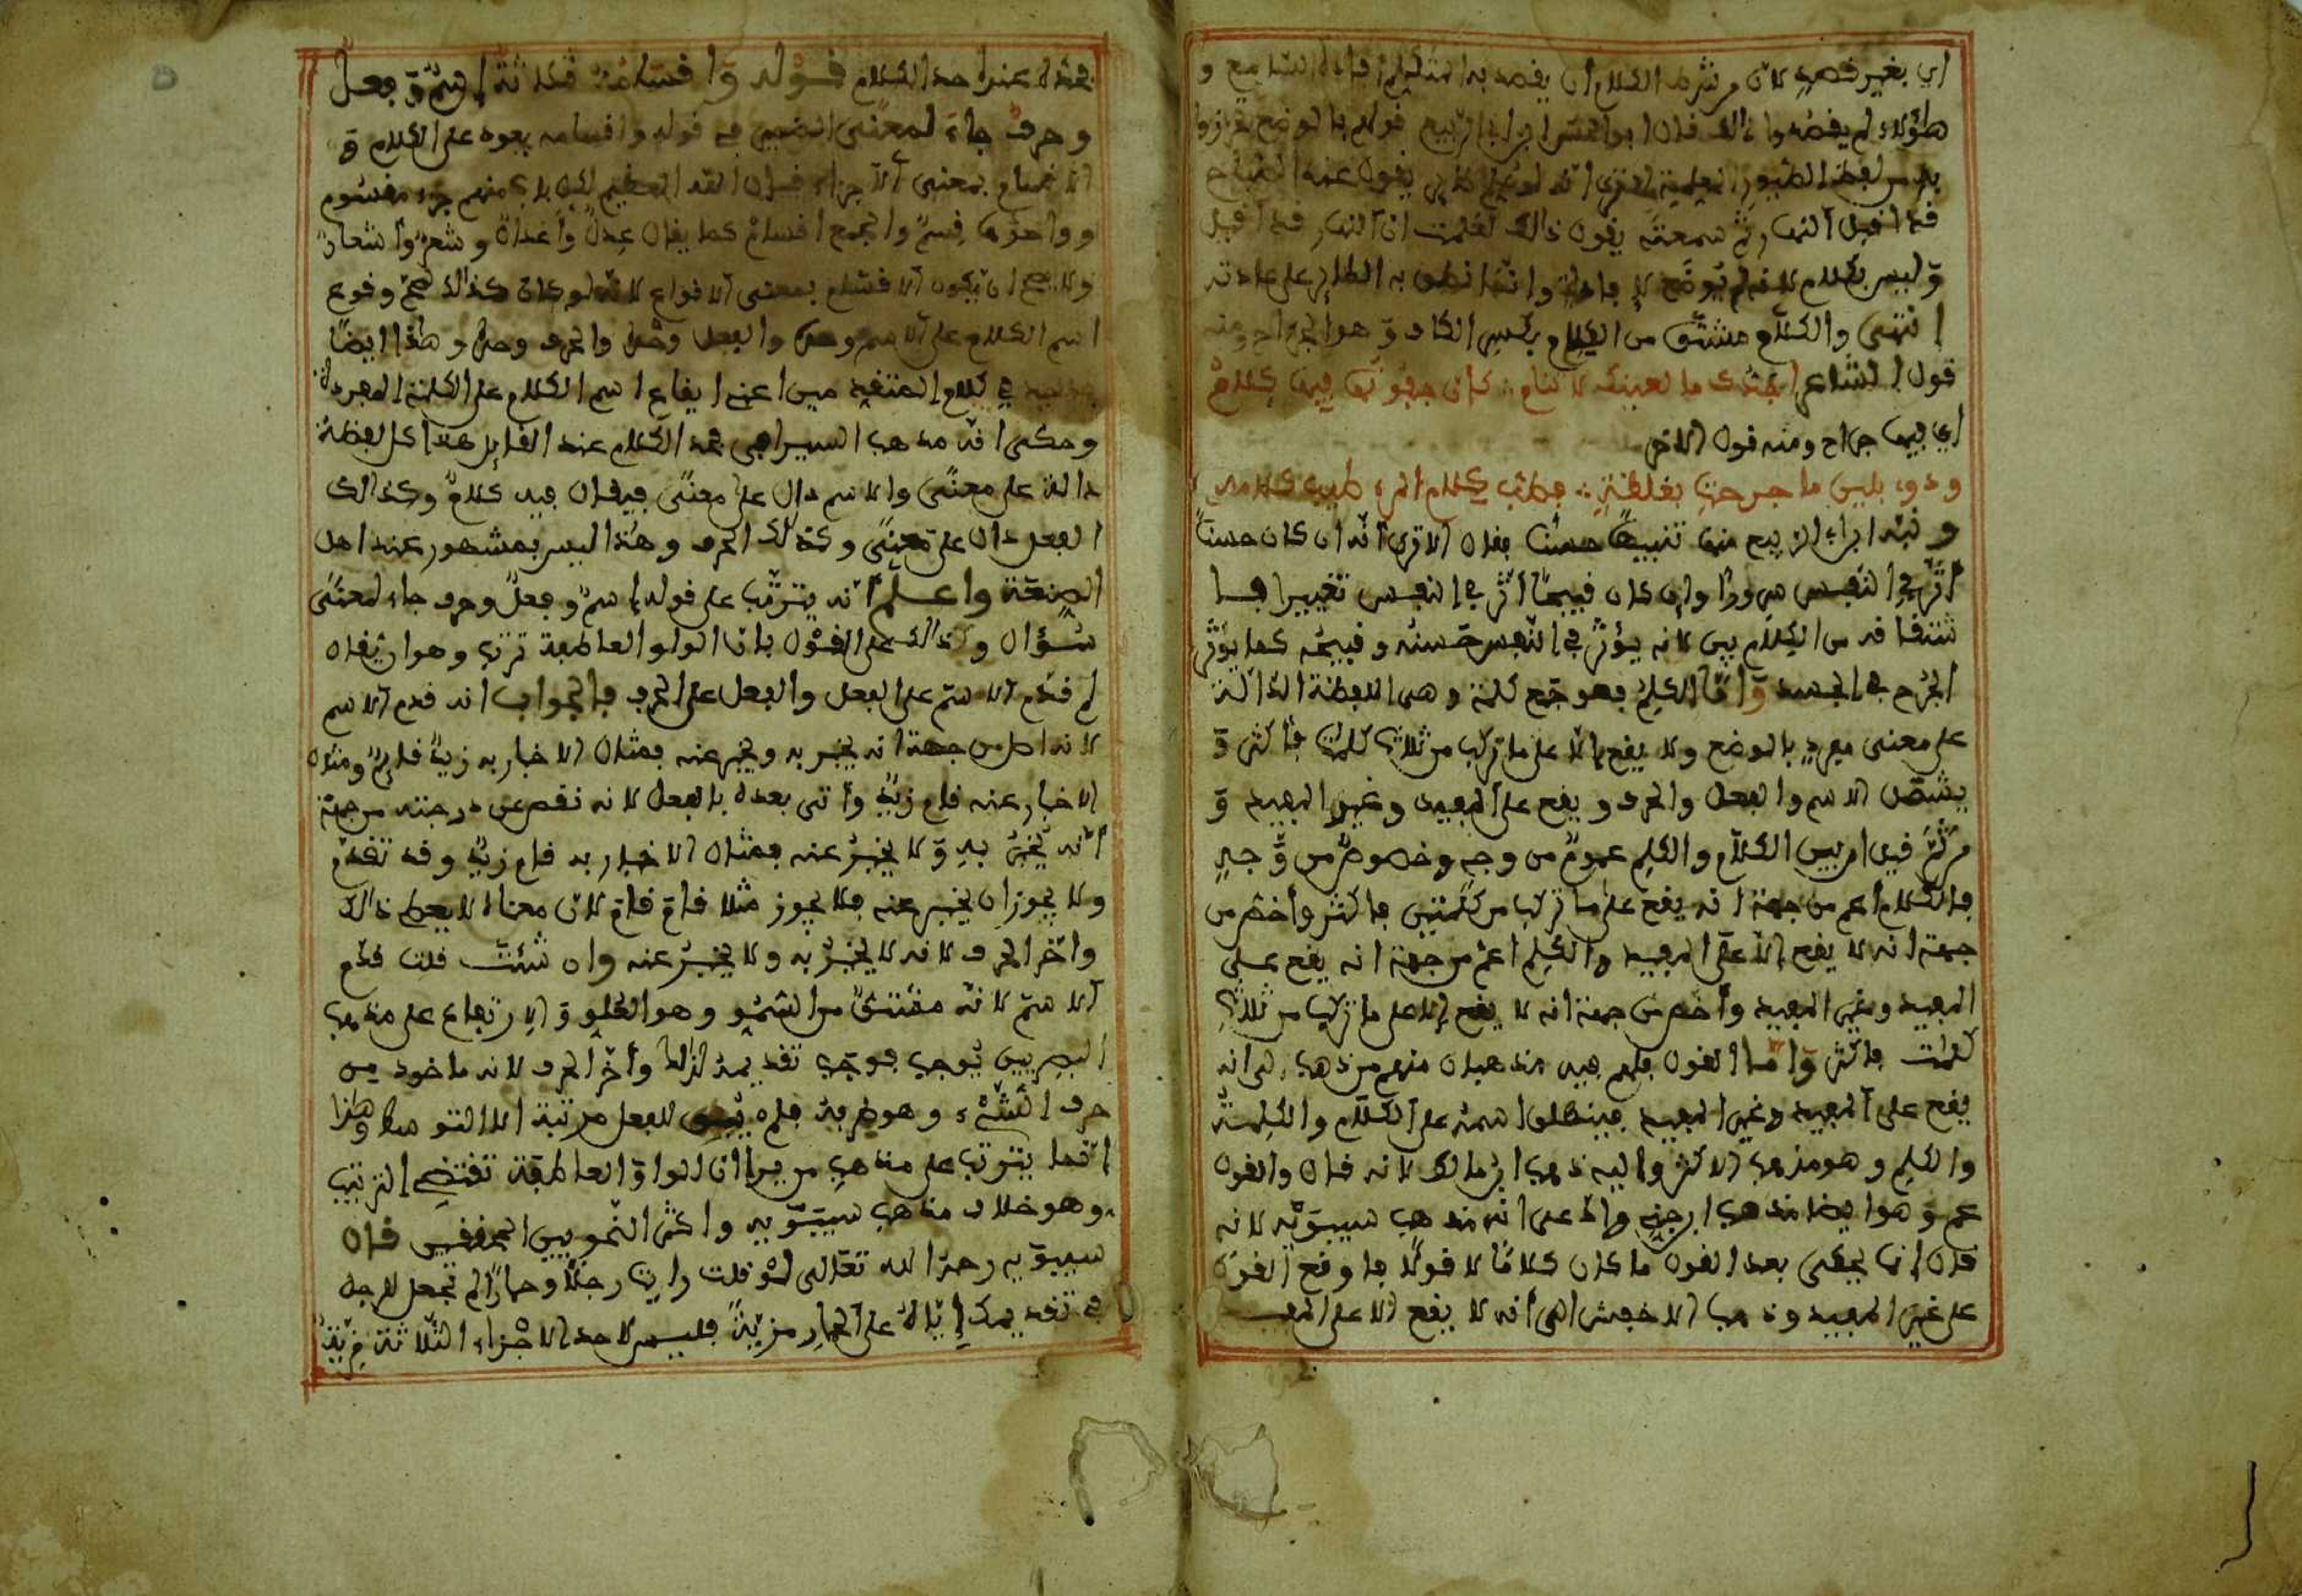 اي بغير قصد لان من شرط الكلام ان يقصد به المتكلم افادة السامع و
هؤلاء لم يقصدوا ذالك قال ابو الحسن ابن ابي الربيع قولهم بالوضع تحرزوا
به من لفظ الطيور المعلمة الا ترى انه لو علم طاير يقول عند الصباح
قد اقبل النهار ثم سمعته يقول ذالك لعلمت ان النهار قد اقبل
وليس بكلام لانه لم يوضع للافادة وانما نطق به الطاير على عادته
انتهى والكلام مشتق من الكلام بكسر الكاف وهو الجراح ومنه
قول الشاعر اجدك ما لعينك لا تنام ∴ كان جفونها فيها كلام
اي فيها جراح ومنه قول الاخر
وداو بلين ما جرحت بغلظة ∴ فطب كلام المرء طيب كلامه
ونبه ابن ابي الربيع منها تنبيها حسنا فقال الا ترى انه ان كان حسنا
اثر في النفس سرورا وان كان قبيحا اثر في النفس تغييرا فا
شتقاقه من الكلام بين لانه يؤثر في النفس حسنه وقبيحه كما يؤثر
الجرح في الجسد واما الكلم فهو جمع كلمة وهي اللفظة الدالة
على معنى مفرد بالوضع ولا يقع الا على ما تركب من ثلاث كلمات فاكثر و
يشتمل الاسم والفعل والحرف ويقع على المفيد وغير المفيد و
من ثم قيل ان بين الكلام والكلم عموم من وجه وخصوص من وجه
فالكلام اعم من جهة انه يقع على ما تركب من كلمتين فاكثر واخص من
جهة انه لا يقع الا على المفيد والكلم اعم من جهة انه يقع على
المفيد وغير المفيد واخص من جهة انه لا يقع الا على ما تركب من ثلاث
كلمات فاكثر واما القول فلهم فيه مذهبان منهم من ذهب الى انه
يقع على المفيد وغير المفيد فينطلق اسمه على الكلام والكلمة
والكلم وهو مذهب الاكثر واليه ذهب ابن مالك لانه قال والقول
عم وهو ايضا مذهب ابن جني وادعى انه مذهب سيبويه لانه
قال انما يحكى بعد القول ما كان كلاما لا قولا فاوقع القول
على غير المفيد وذهب الاخفش الى انه لا يقع الا على المفيد
فهذه عند احد الكلام قوله واقسامه ثلاثة اسم وفعل
وحرف جاء لمعنى الضمير في قوله واقسامه يعود على الكلام و
الاقسام بمعنى الاجزاء قال الله العظيم لكل باب منهم جزء مقسوم
وواحدها قسم والجمع اقسام كما يقال عدل واعدال وشعر واشعار
ولا يصح ان يكون الاقسام بمعنى الانواع لانه لو كان كذالك لصح وقوع
اسم الكلام على الاسم وحده والفعل وحده والحرف وحده وهذا ايضا
في كلام المتقدمين اعني ايقاع اسم الكلام على الكلمة المفردة
وحكى انه مذهب السيرافي فحد الكلام عند القايل هذا كل لفظة
دالة على معنى والاسم دال على معنى فيقال فيه كلام وكذالك
الفعل دال على معنى وكذالك الحرف وهذا ليس بمشهور عند اهل
الصنعة واعلم انه يترتب على قوله اسم وفعل وحرف جاء لمعنى
سؤال وذالك على القول بان الواو العاطفة ترتب وهو ان يقال
لم قدم الاسم على الفعل والفعل على الحرف فالجواب انه قدم الاسم
لانه اصل من جهة انه يخبر به ويخبر عنه فمثال الاخبار به زيد قايم ومثال
الاخبار عنه قام زيد واتى بعده بالفعل لانه نقص عن درجته من جهة
انه يخبر به ولا يخبر عنه فمثال الاخبار به قام زيد وقد تقدم
ولا يجوز ان يخبر عنه فلا يجوز مثلا قام قام لان معناه لا يعطي ذالك
واخر الحرف لانه لا يخبر به ولا يخبر عنه وان شئت قلت قدم
الاسم لانه مشتق من السمو وهو العلو والارتفاع على مذهب
البصريين يوجب فوجب تقديمه لذالك واخر الحرف لانه ماخوذ من
حرف الشيء وهو طرفه فلم يبق للفعل مرتبة الا التوسط وهذا
انما يترتب على مذهب من يرا ان الواو العاطفة تقتضي الترتيب
وهو خلاف مذهب سيبويه واكثر النحويين المحققين قال
سيبويه رحمه الله تعالى لو قلت رايت رجلا وحمارا لم تجعل للرجل
في تقديمك اياه على الحمار مزية فليس لاحد الاجزاء الثلاثة مزية